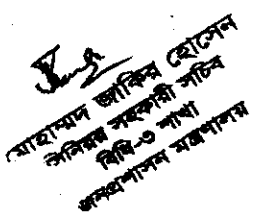 মোহাম্মদ জাকির হোসেন
সিনিয়র সহকারী সচিব
বিধি-৩ শাখা
জনপ্রশাসন মন্ত্রণালয়